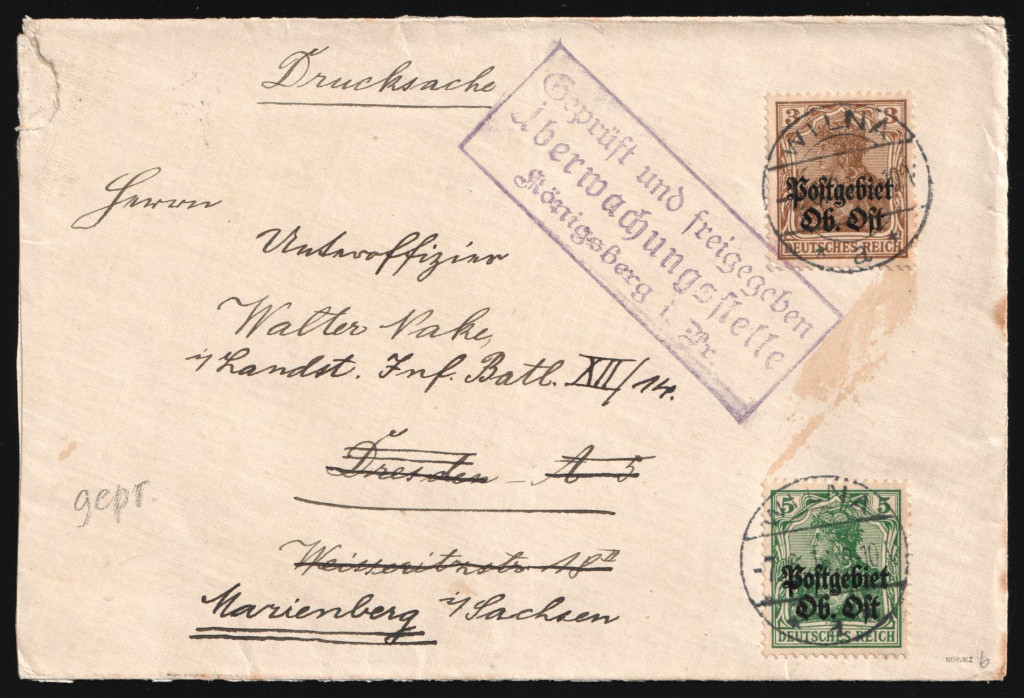 Drucksache
Geprüft und freigegeben
Überwachungsstelle
Königsberg i. Pr.
3 3
Postgebiet
Ob. Ost
DEUTSCHES REICH
WILNA
* a *
Herrn
Unteroffizier
Walter Nake,
i/Landst. Inf. Batl. XII/14.
Dresden - A 5
Weisseritzstr 18 II
Marienberg i/Sachsen
gepr.
5 5
Postgebiet
Ob. Ost
DEUTSCHES REICH
WILNA
b